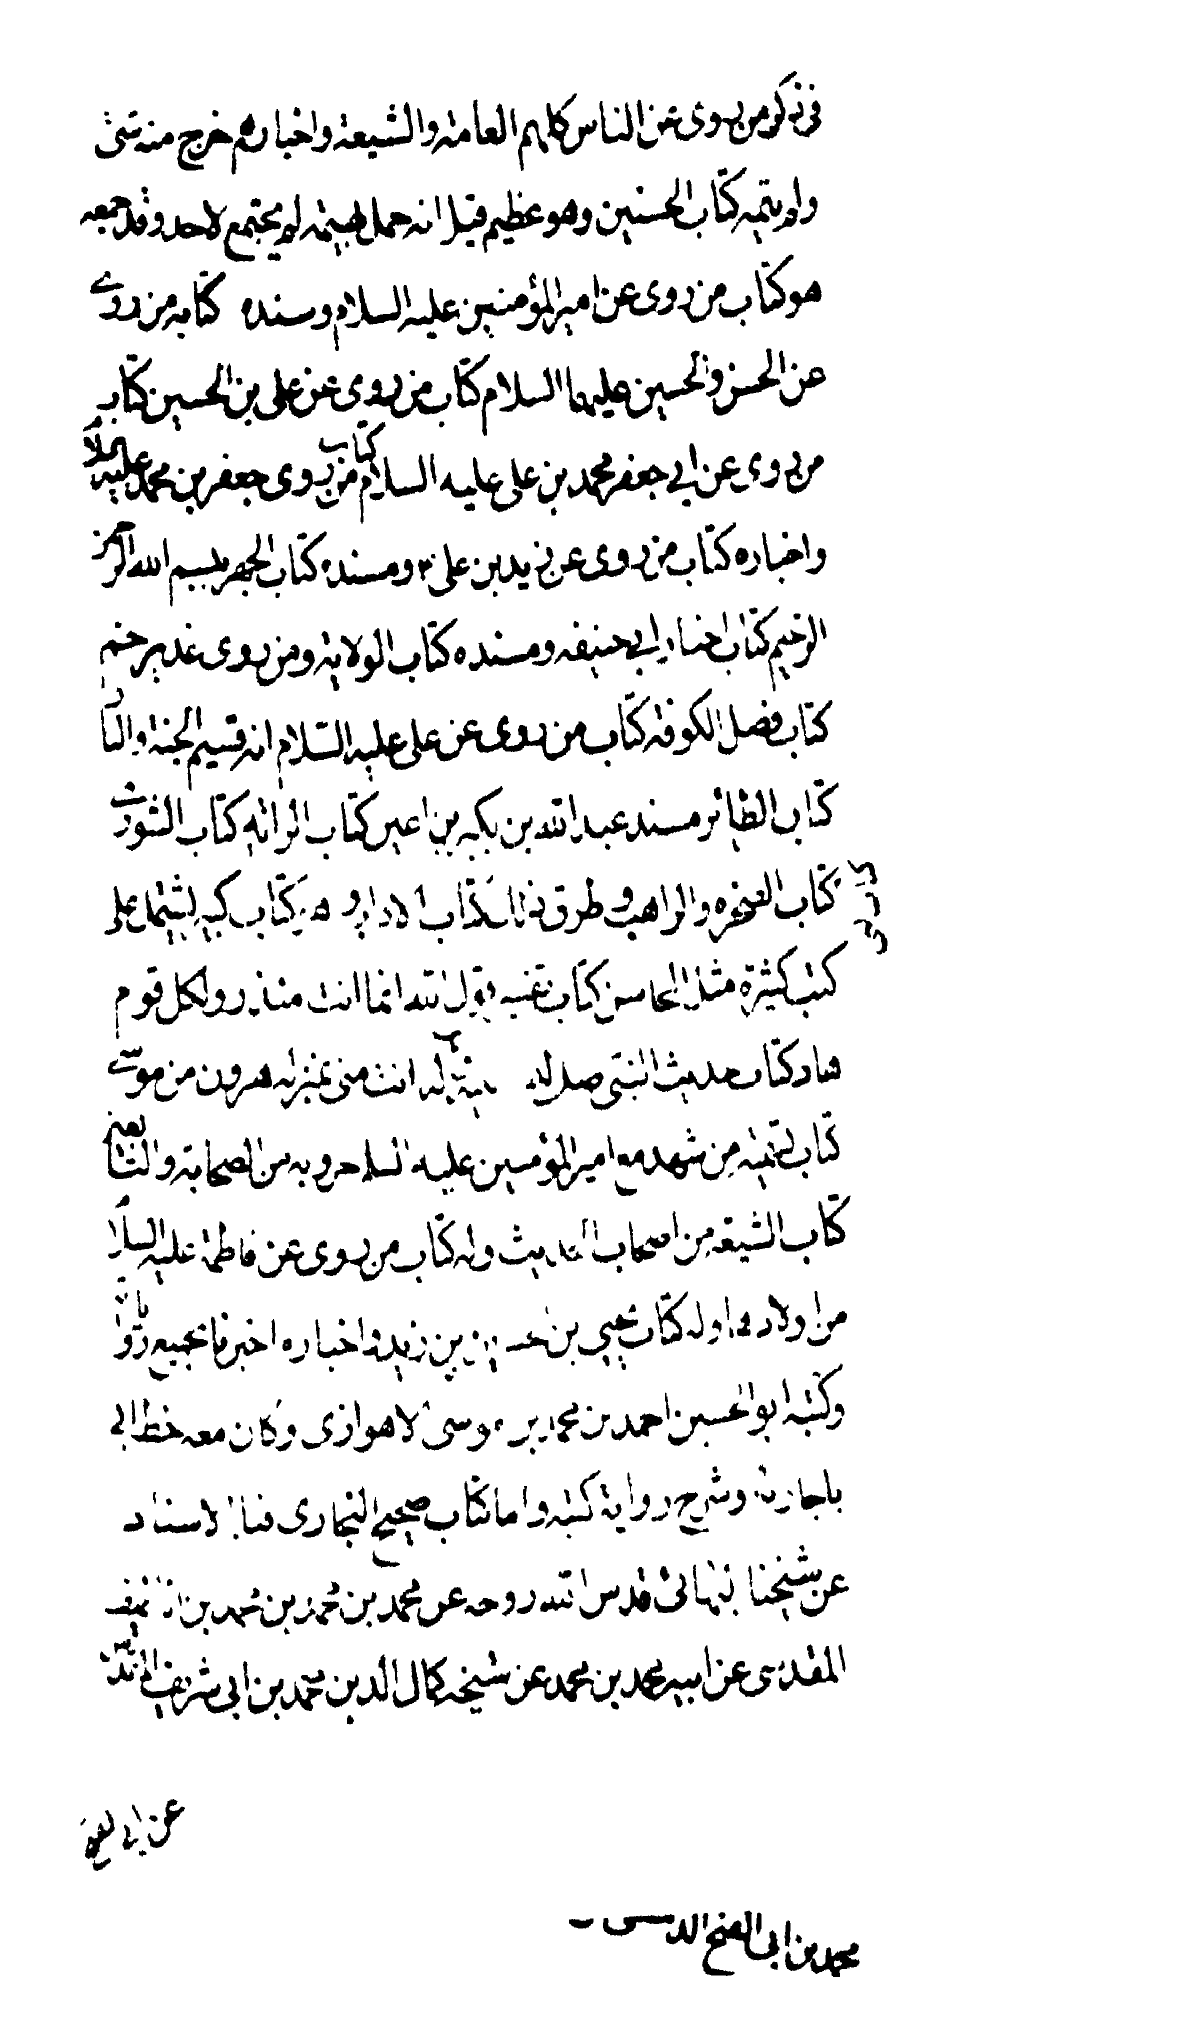 في ذكر من روى عن الناس كلهم العامة والشيعة واخبارهم خرج منه شئ
ولم يتمه كتاب الحسنين وهو عظيم قيل انه حمل بهيمة لم يجتمع لاحد وقد جمعه
هو كتاب من روى عن امير المؤمنين عليه السلام ومسنده كتابه من روى
عن الحسن والحسين عليهما السلام كتاب من روى عن علي بن الحسين كتاب
من روى عن ابي جعفر محمد بن علي عليه السلام كتاب من روى جعفر بن محمد عليه السلام
واخباره كتاب من روى عن زيد بن علي ومسنده كتاب الجهر ببسم الله الرحمن
الرحيم كتاب اخبار ابي حنيفه ومسنده كتاب الولاية ومن روى غدير خم
كتاب فضل الكوفة كتاب من روى عن علي عليه السلام انه قسيم الجنة والنار
كتاب الطائر مسند عبد الله بن بكير بن اعين كتاب الراية كتاب الشورى
كتاب الصخره والراهب وطرق كتاب الاداب وهو كتاب كبير يشتمل على
كتب كثيرة مثل المحاسن كتاب تفسير قول الله انما انت منذر ولكل قوم
هاد كتاب حديث النبي صلى انت مني بمنزلة هرون من موسى
كتاب تسمية من شهد مع امير المؤمنين عليه السلام حروبه من الصحابة والتابعين
كتاب الشيعة من اصحاب الحديث وله كتاب من روى عن فاطمة عليها السلام
من اولادها وله كتاب يحيى بن الحسين بن زيد واخباره اخبرنا بجميع رواياته
وكتبه ابو الحسين احمد بن محمد بن موسى الاهوازي وكان معه خط ابي
باجازته وشرح رواية كتبه واما كتاب صحيح البخاري فبالاسناد
عن شيخنا البهائي قدس الله روحه عن محمد بن محمد بن محمد بن
المقدسي عن ابيه محمد بن محمد عن شيخه كمال الدين محمد بن ابي شريف المقدسي
عن ابي الفتح
محمد بن ابي الفتح